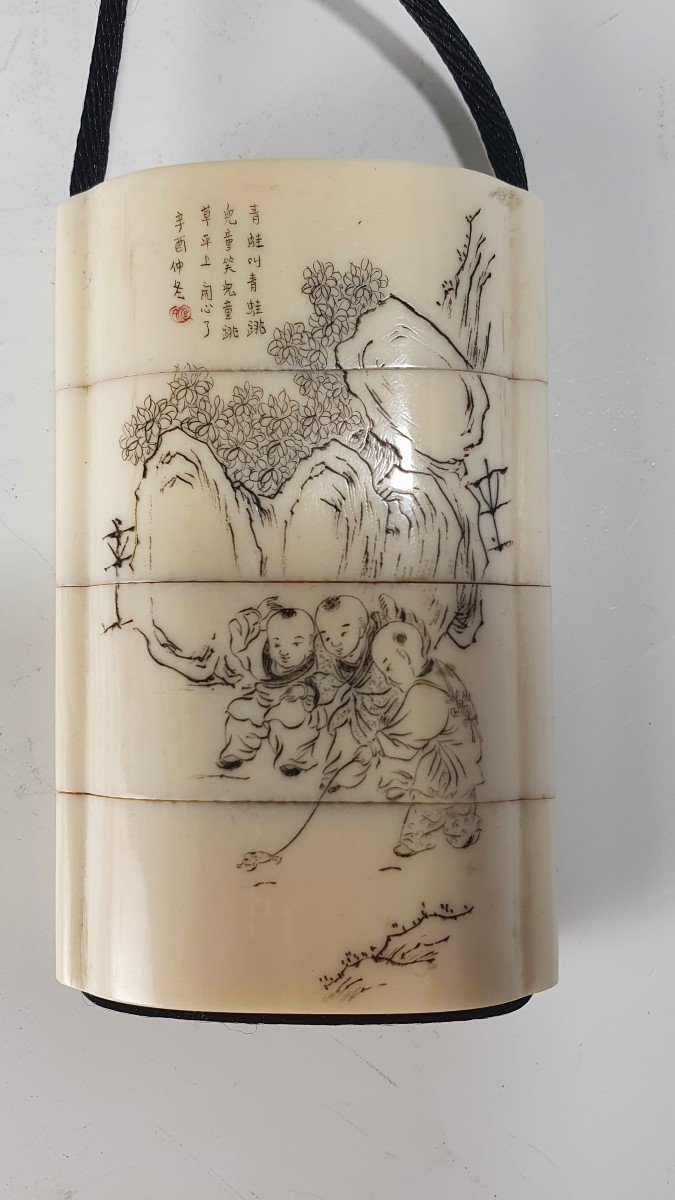 青蛙叫青蛙跳
兒童笑兒童跳
草平上 開心了
辛酉仲冬